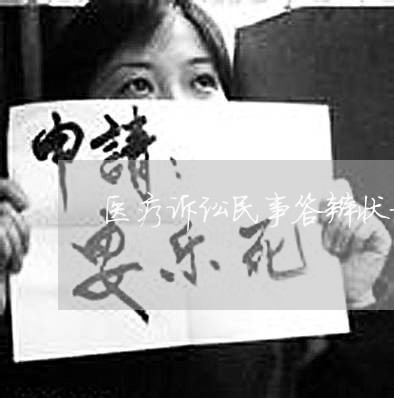 申請：
医疗诉讼民事答辩状-
安乐死